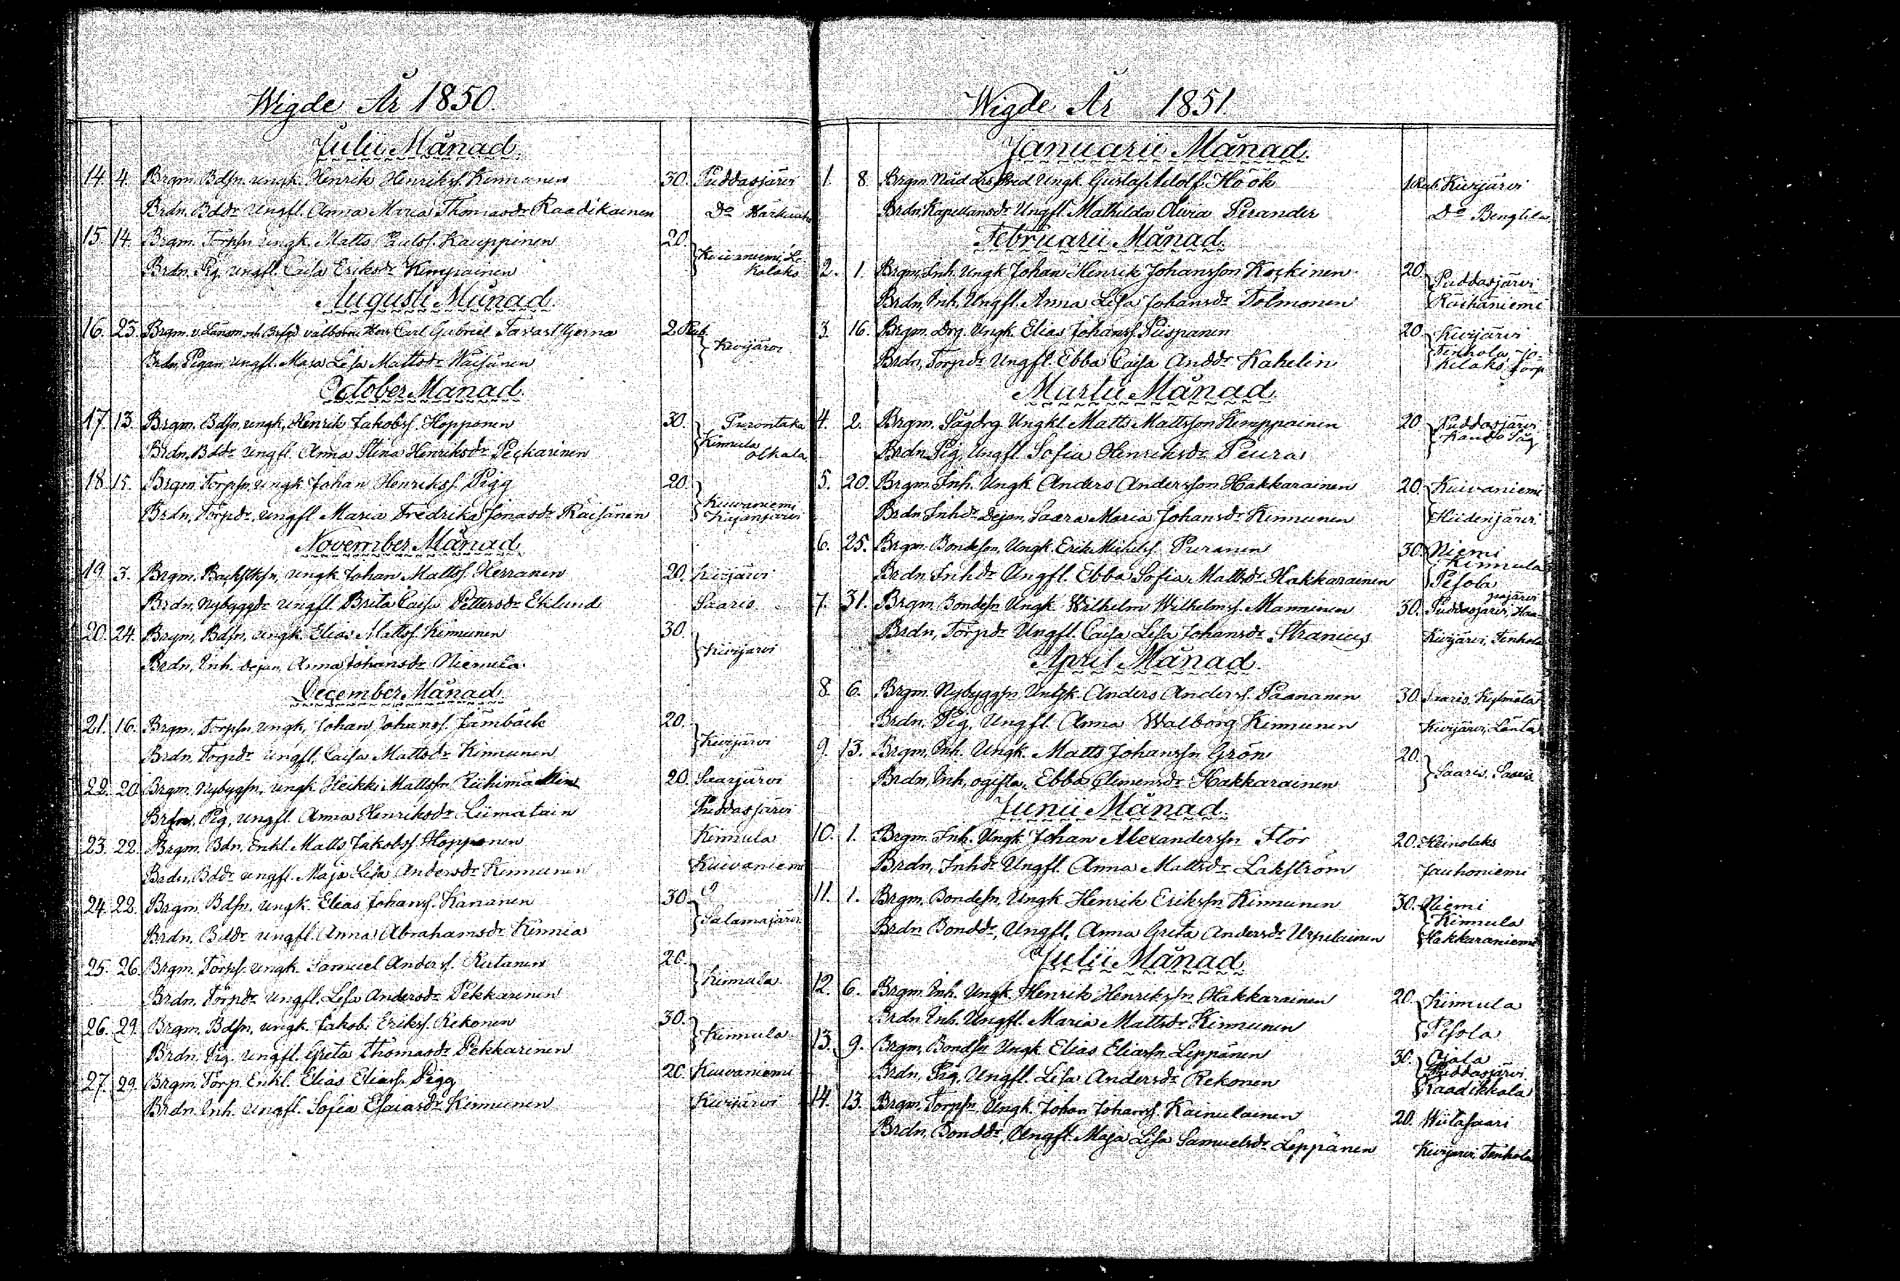 Wigde År 1850.
Julii Månad.
14. 4. Brgm. Bdsn. ungk. Henrik Henrikss. Kinnunen 30. Puddasjärvi
Brdn. Bddr. Ungfl. Anna Maria Thomasdr. Raadikainen Do
15. 14. Brgm. Torpsn. ungk. Matts Kauppinen 20. Kuivaniemi
Brdn. Pig. ungfl. Caisa Eriksdr. Kimpainen
Augusti Månad
16. 25. Brgm. Carl Gabriel Tavastsjerna 2 Rub. Kivijärvi
Brdn. Pigan, ungfl. Maja Lisa Mattsdr. Wäisänen
October Månad.
17. 13. Brgm. Bdsn. ungk. Henrik Jakobss. Hopponen 30. Purontaka
Brdn. Bddr. ungfl. Anna Stina Henriksdr. Peckarinen Kinnula
18. 15. Brgm. Torpsn. ungk. Johan Henrikss. Pigg 20. Kuivaniemi
Brdn. Torpdr. ungfl. Maria Fredrika Jonasdr. Räisänen
November Månad
19. 3. Brgm. ungk. Johan Mattss. Herranen 20. Kivijärvi
Brdn. Nybyggdr. ungfl. Brita Caisa Pettersdr. Eklund Saaris
20. 24. Brgm. Bdsn. ungk. Elias Mattss. Kinnunen 30. Kivijärvi
Brdn. Inh. dejan, Anna Johansdr. Niemelä
December Månad.
21. 16. Brgm. Torpsn. ungk. Johan Johanss. Jämbäck 20. Kivijärvi
Brdn. Torpdr. ungfl. Caisa Mattsdr. Kinnunen
22. 20. Brgm. Nybygsn. ungk. Heikki Mattssn. Riihimäkinen 20. Saarjärvi
Brdn. Pig. ungfl. Anna Henriksdr. Liimatain Puddasjärvi
23. 22. Brgm. Bdn. Enkl. Matts Jakobss. Hopponen Kinnula
Brdn. Bddr. ungfl. Maja Lisa Andersdr. Kinnunen Kuivaniemi
24. 22. Brgm. Bdsn. ungk. Elias Johanss. Kananen 30. Salamajärvi
Brdn. Bddr. ungfl. Anna Abrahamsdr. Kinnia
25. 26. Brgm. Torpsn. ungk. Samuel Anderss. Rutanen 20. Kinnula
Brdn. Torpdr. ungfl. Lisa Andersdr. Pekkarinen
26. 29. Brgm. Bdsn. ungk. Jakob. Erikss. Rekonen 30. Kinnula
Brdn. Pig. ungfl. Greta Thomasdr. Pekkarinen
27. 29. Brgm. Torp. Enkl. Elias Eliass. Pigg 20. Kuivaniemi
Brdn. Inh. ungfl. Sofia Esaiasdr. Kinnunen Kivijärvi
Wigde År 1851.
Januarii Månad.
1. 8. Brgm. Ungk. Gustaf Adolf Höök 1 Rub. Kivijärvi
Brdn. Kapellansdr. Ungfl. Mathilda Olivia Perander Do Bengtila
Februarii Månad
2. 1. Brgm. Inh. Ungk. Johan Henrik Johansson Kockinen 20. Puddasjärvi
Brdn. Inh. Ungfl. Anna Lisa Johansdr. Tolmonen Räihäniemi
3. 16. Brgm. Drg. Ungk. Elias Johanss. Piispanen 20. Kivijärvi
Brdn. Torpdr. Ungfl. Ebba Caisa Anddr. Kahelin Tinhola
Martii Månad
4. 2. Brgm. Sågdrg. Ungkl. Matts Mattsson Kemppainen 20. Puddasjärvi
Brdn. Pig. Ungfl. Sofia Henriksdr. Peura
5. 20. Brgm. Inh. Ungk. Anders Andersson Hakkarainen 20. Kuivaniemi
Brdn. Inhdr. Dejan, Saara Maria Johansdr. Kinnunen Hiidenjärvi
6. 25. Brgm. Bondesn. Ungk. Erik Michelss. Puranen 30. Niemi Kinnula
Brdn. Inhdr. Ungfl. Ebba Sofia Mattsdr. Hakkarainen Pesola
7. 31. Brgm. Bondesn. Ungk. Wilhelm Wilhelmss. Manninen 30. Puddasjärvi
Brdn. Torpdr. Ungfl. Caisa Lisa Johansdr. Stranius Kivijärvi, Tinhola
April Månad.
8. 6. Brgm. Nybyggsn. Ungk. Anders Anderss. Paananen 30. Saaris
Brdn. Pig. Ungfl. Anna Walborg Kinnunen Kivijärvi, Länta
9. 13. Brgm. Inh. Ungk. Matts Johanssn. Grön 20. Saaris, Saaris
Brdn. Inh. ogifta, Ebba Clemensdr. Hakkarainen
Junii Månad
10. 1. Brgm. Inh. Ungk. Johan Alexanderssn. Flor 20. Heinolaks
Brdn. Inhdr. Ungfl. Anna Mattsdr. Lakström Jauhoniemi
11. 1. Brgm. Bondesn. Ungk. Henrik Erikssn. Kinnunen 30. Niemi Kinnula
Brdn. Bonddr. Ungfl. Anna Greta Andersdr. Urpilainen Hakkaraniemi
Julii Månad
12. 6. Brgm. Inh. Ungk. Henrik Henrikssn. Hakkarainen 20. Kinnula
Brdn. Inh. Ungfl. Maria Mattsdr. Kinnunen Pesola
13. 9. Brgm. Bondsn. Ungk. Elias Eliassn. Leppänen 30. Puddasjärvi
Brdn. Pig. Ungfl. Lisa Andersdr. Rekonen Raadikkala
14. 13. Brgm. Torpsn. Ungk. Johan Johanss. Kainulainen 20. Wiitasaari
Brdn. Bonddr. Ungfl. Maja Lisa Samuelsdr. Leppänen Kivijärvi, Tinhola